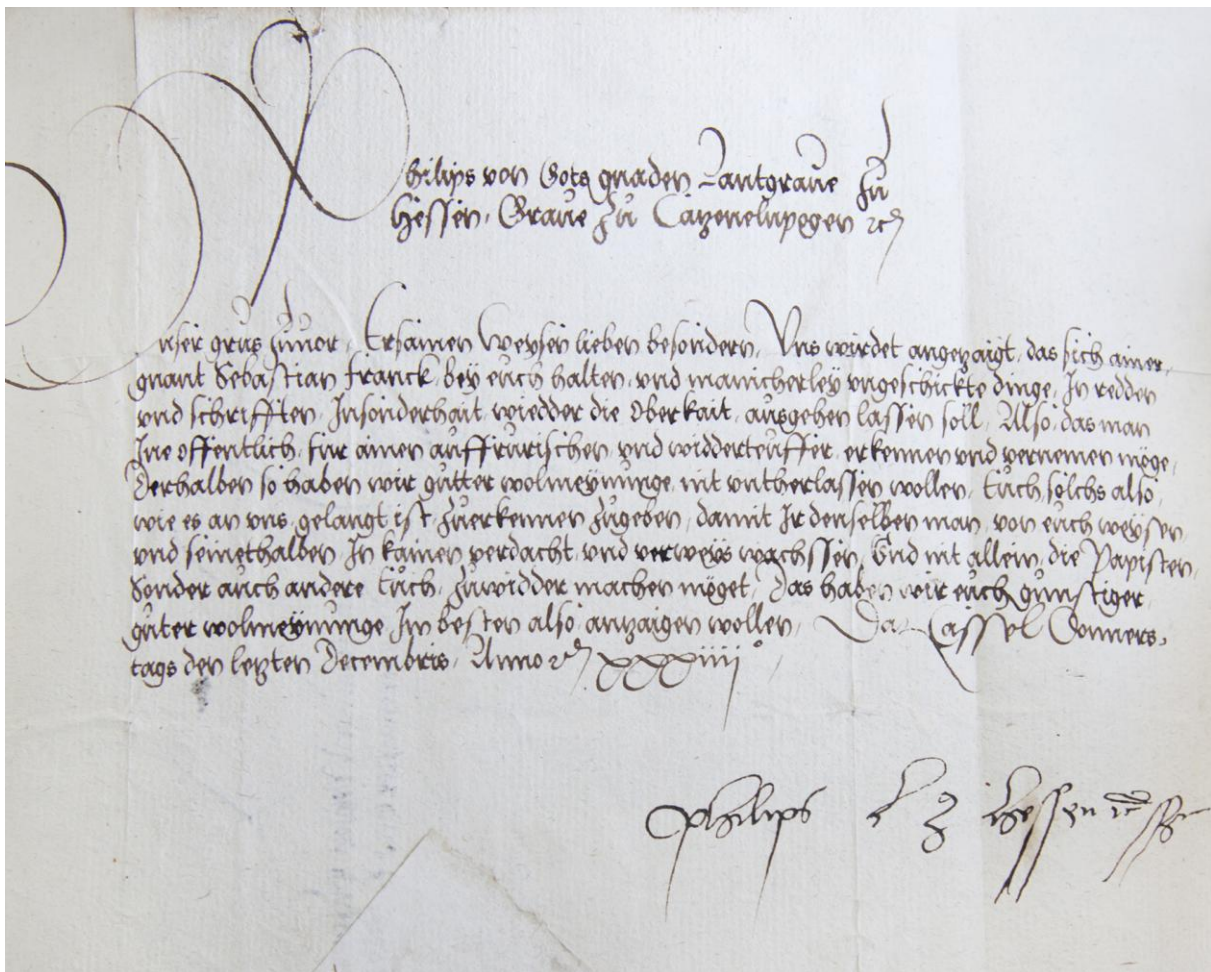 Philips von Gots gnaden Lantgraue zu
Hessen, Graue zu Catzenelnpogen ꝛc
Unser grus zuuor, Ersamen Weysen lieben besondern, Vns wirdet angezaigt, das sich ainer,
gnant Sebastian Franck, bey euch halten, vnd manicherley vngeschickte dinge, In redden
vnd schrifften, Insonderhait wiedder die Oberkait, ausgehen lassen soll, Also, das man
Ine offentlich, fur ainen auffrurischen, vnd widderteuffer, erkennen vnd vernemen möge,
Derhalben so haben wir gutter wolmeynunge, nit vntherlassen wollen, Euch solchs also,
wie es an vns gelangt ist, zuerkennen zugeben, damit Ir denselben man, von euch weysen,
vnd seinethalben In kainen verdacht, vnd verweys wachssen, Vnd nit allein, die Papisten,
Sonder auch andere Euch, zuwidder machen möget, Das haben wir euch gunstiger,
guter wolmeynunge Im besten also, antzaigen wollen, Dat Cassel Donners,
tags den letzten Decembris, Anno ꝛc xxxiiij°
Philips L Z Hessen ꝛc